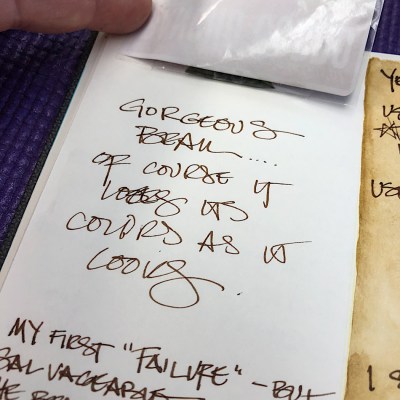 GORGEOUS
PEARL....
OF COURSE IT
LOSES ITS
COLORS AS IT
COOLS.
MY FIRST "FAILURE" - BUT
SALVAGEABLE
THE
YE
US
USE
I